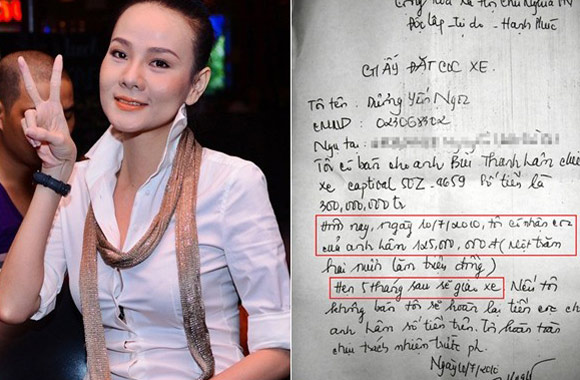 Cộng hòa xã hội chủ nghĩa VN
Độc lập - Tự do - Hạnh Phúc
GIẤY ĐẶT CỌC XE
Tôi tên : Dương Yến Ngọc
CMND : 023068302
Ngụ tại :
Tôi có bán cho anh Bùi Thanh hân chiếc
xe captival 50Z-4659 số tiền là
300,000,000 tr
Hôm nay, ngày 10/7/2010, tôi có nhận cọc
của anh hân 125,000,000 đ (Một trăm
hai mươi lăm triệu đồng)
Hẹn 5 tháng sau sẽ giao xe Nếu tôi
không bán tôi sẽ hoàn lại tiền cọc cho
anh hân số tiền trên. Tôi hoàn toàn
chịu trách nhiệm trước pl.
Ngày 10/7/2010